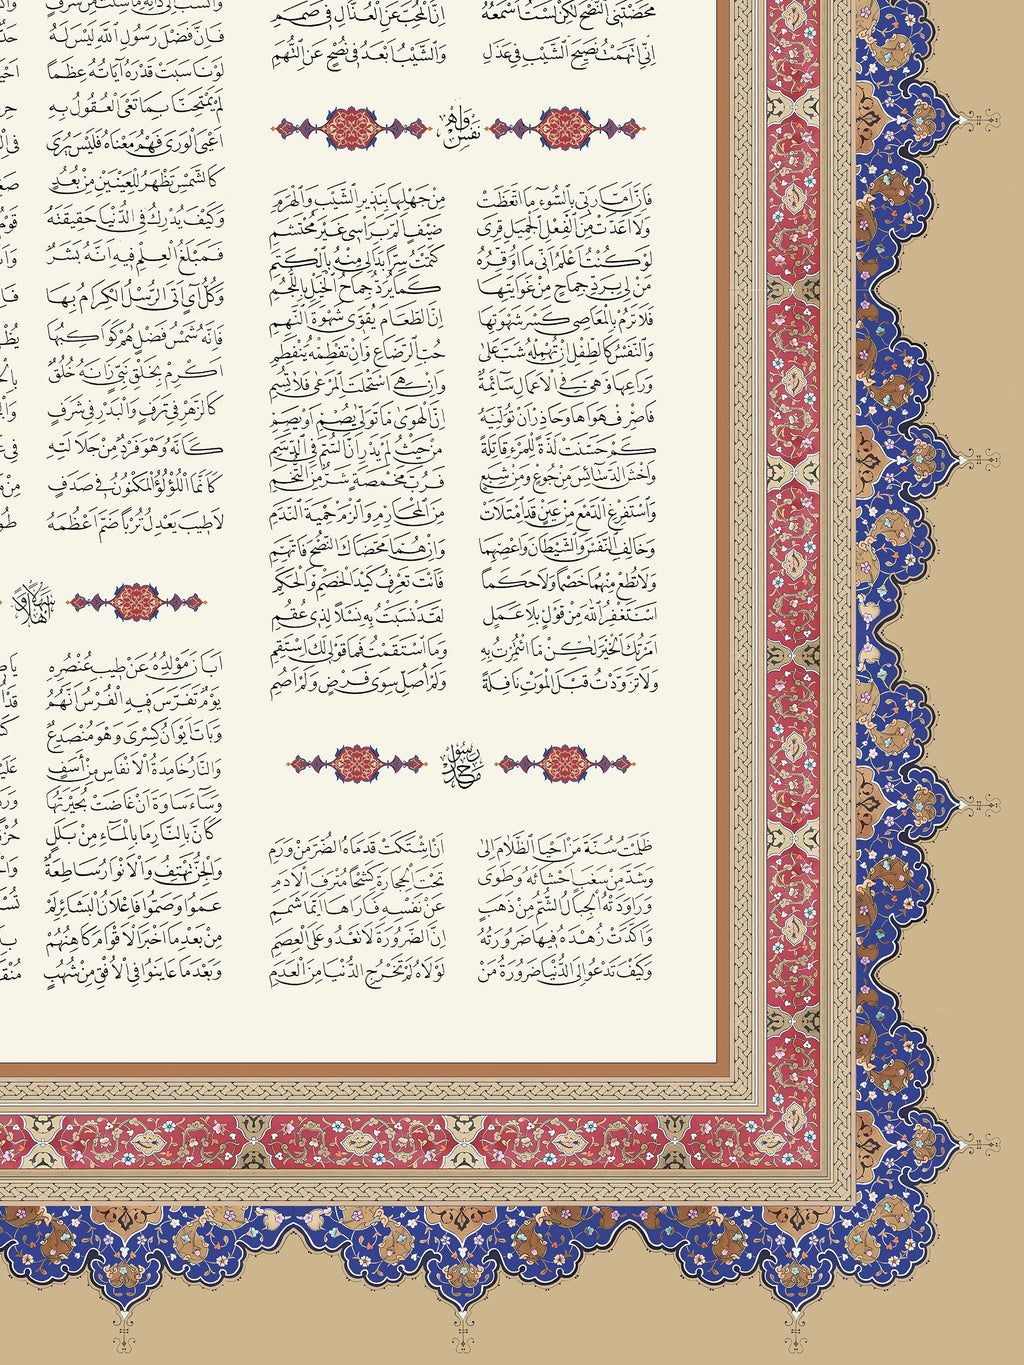 محضتني النصح لكن لست أسمعه إن المحب عن العذال في صمم
إني اتهمت نصيح الشيب في عذل والشيب أبعد في نصح عن التهم
نفس
فإن أمارتي بالسوء ما اتعظت من جهلها بنذير الشيب والهرم
ولا أعدت من الفعل الجميل قرى ضيف ألم برأسي غير محتشم
لو كنت أعلم أني ما أوقره كتمت سرا بدا لي منه بالكتم
من لي برد جماح من غوايتها كما يرد جماح الخيل باللجم
فلا ترم بالمعاصي كسر شهوتها إن الطعام يقوي شهوة النهم
والنفس كالطفل إن تهمله شب على حب الرضاع وإن تفطمه ينفطم
وراعها وهي في الأعمال سائمة وإن هي استحلت المرعى فلا تسم
فاصرف هواها وحاذر أن توليه إن الهوى ما تولى يصم أو يصم
كم حسنت لذة للمرء قاتلة من حيث لم يدر أن السم في الدسم
واخش الدسائس من جوع ومن شبع فرب مخمصة شر من التخم
واستفرغ الدمع من عين قد امتلأت من المحارم والزم حمية الندم
وخالف النفس والشيطان واعصهما وإن هما محضاك النصح فاتهم
ولا تطع منهما خصما ولا حكما فأنت تعرف كيد الخصم والحكم
استغفر الله من قول بلا عمل لقد نسبت به نسلا لذي عقم
أمرتك الخير لكن ما ائتمرت به وما استقمت فما قولي لك استقم
ولا تزودت قبل الموت نافلة ولم أصل سوى فرض ولم أصم
رسول محمد
ظلمت سنة من أحيا الظلام إلى أن اشتكت قدماه الضر من ورم
وشد من سغب أحشائه وطوى تحت الحجارة كشحا مترف الأدم
وراودته الجبال الشم من ذهب عن نفسه فأراها أيما شمم
وأكدت زهده فيها ضرورته إن الضرورة لا تعدو على العصم
وكيف تدعو إلى الدنيا ضرورة من لولاه لم تخرج الدنيا من العدم
فإن فضل رسول الله ليس له
لو ناسبت قدره آياته عظما
لم يمتحنا بما تعيى العقول به
أعيى الورى فهم معناه فليس يرى
كالشمس تظهر للعينين من بعد
وكيف يدرك في الدنيا حقيقته
فمبلغ العلم فيه أنه بشر
وكل آي أتى الرسل الكرام بها
فإنه شمس فضل هم كواكبها
أكرم بخلق نبي زانه خلق
كالزهر في ترف والبدر في شرف
كأنه وهو فرد من جلالته
كأنما اللؤلؤ المكنون في صدف
لا طيب يعدل تربا ضم أعظمه
أبان مولده عن طيب عنصره
يوم تفرس فيه الفرس أنهم
وبات إيوان كسرى وهو منصدع
والنار خامدة الأنفاس من أسف
وساء ساوة أن غاضت بحيرتها
كأن بالنار ما بالماء من بلل
والجن تهتف والأنوار ساطعة
عموا وصموا فإعلان البشائر لم
من بعد ما أخبر الأقوام كاهنهم
وبعد ما عاينوا في الأفق من شهب